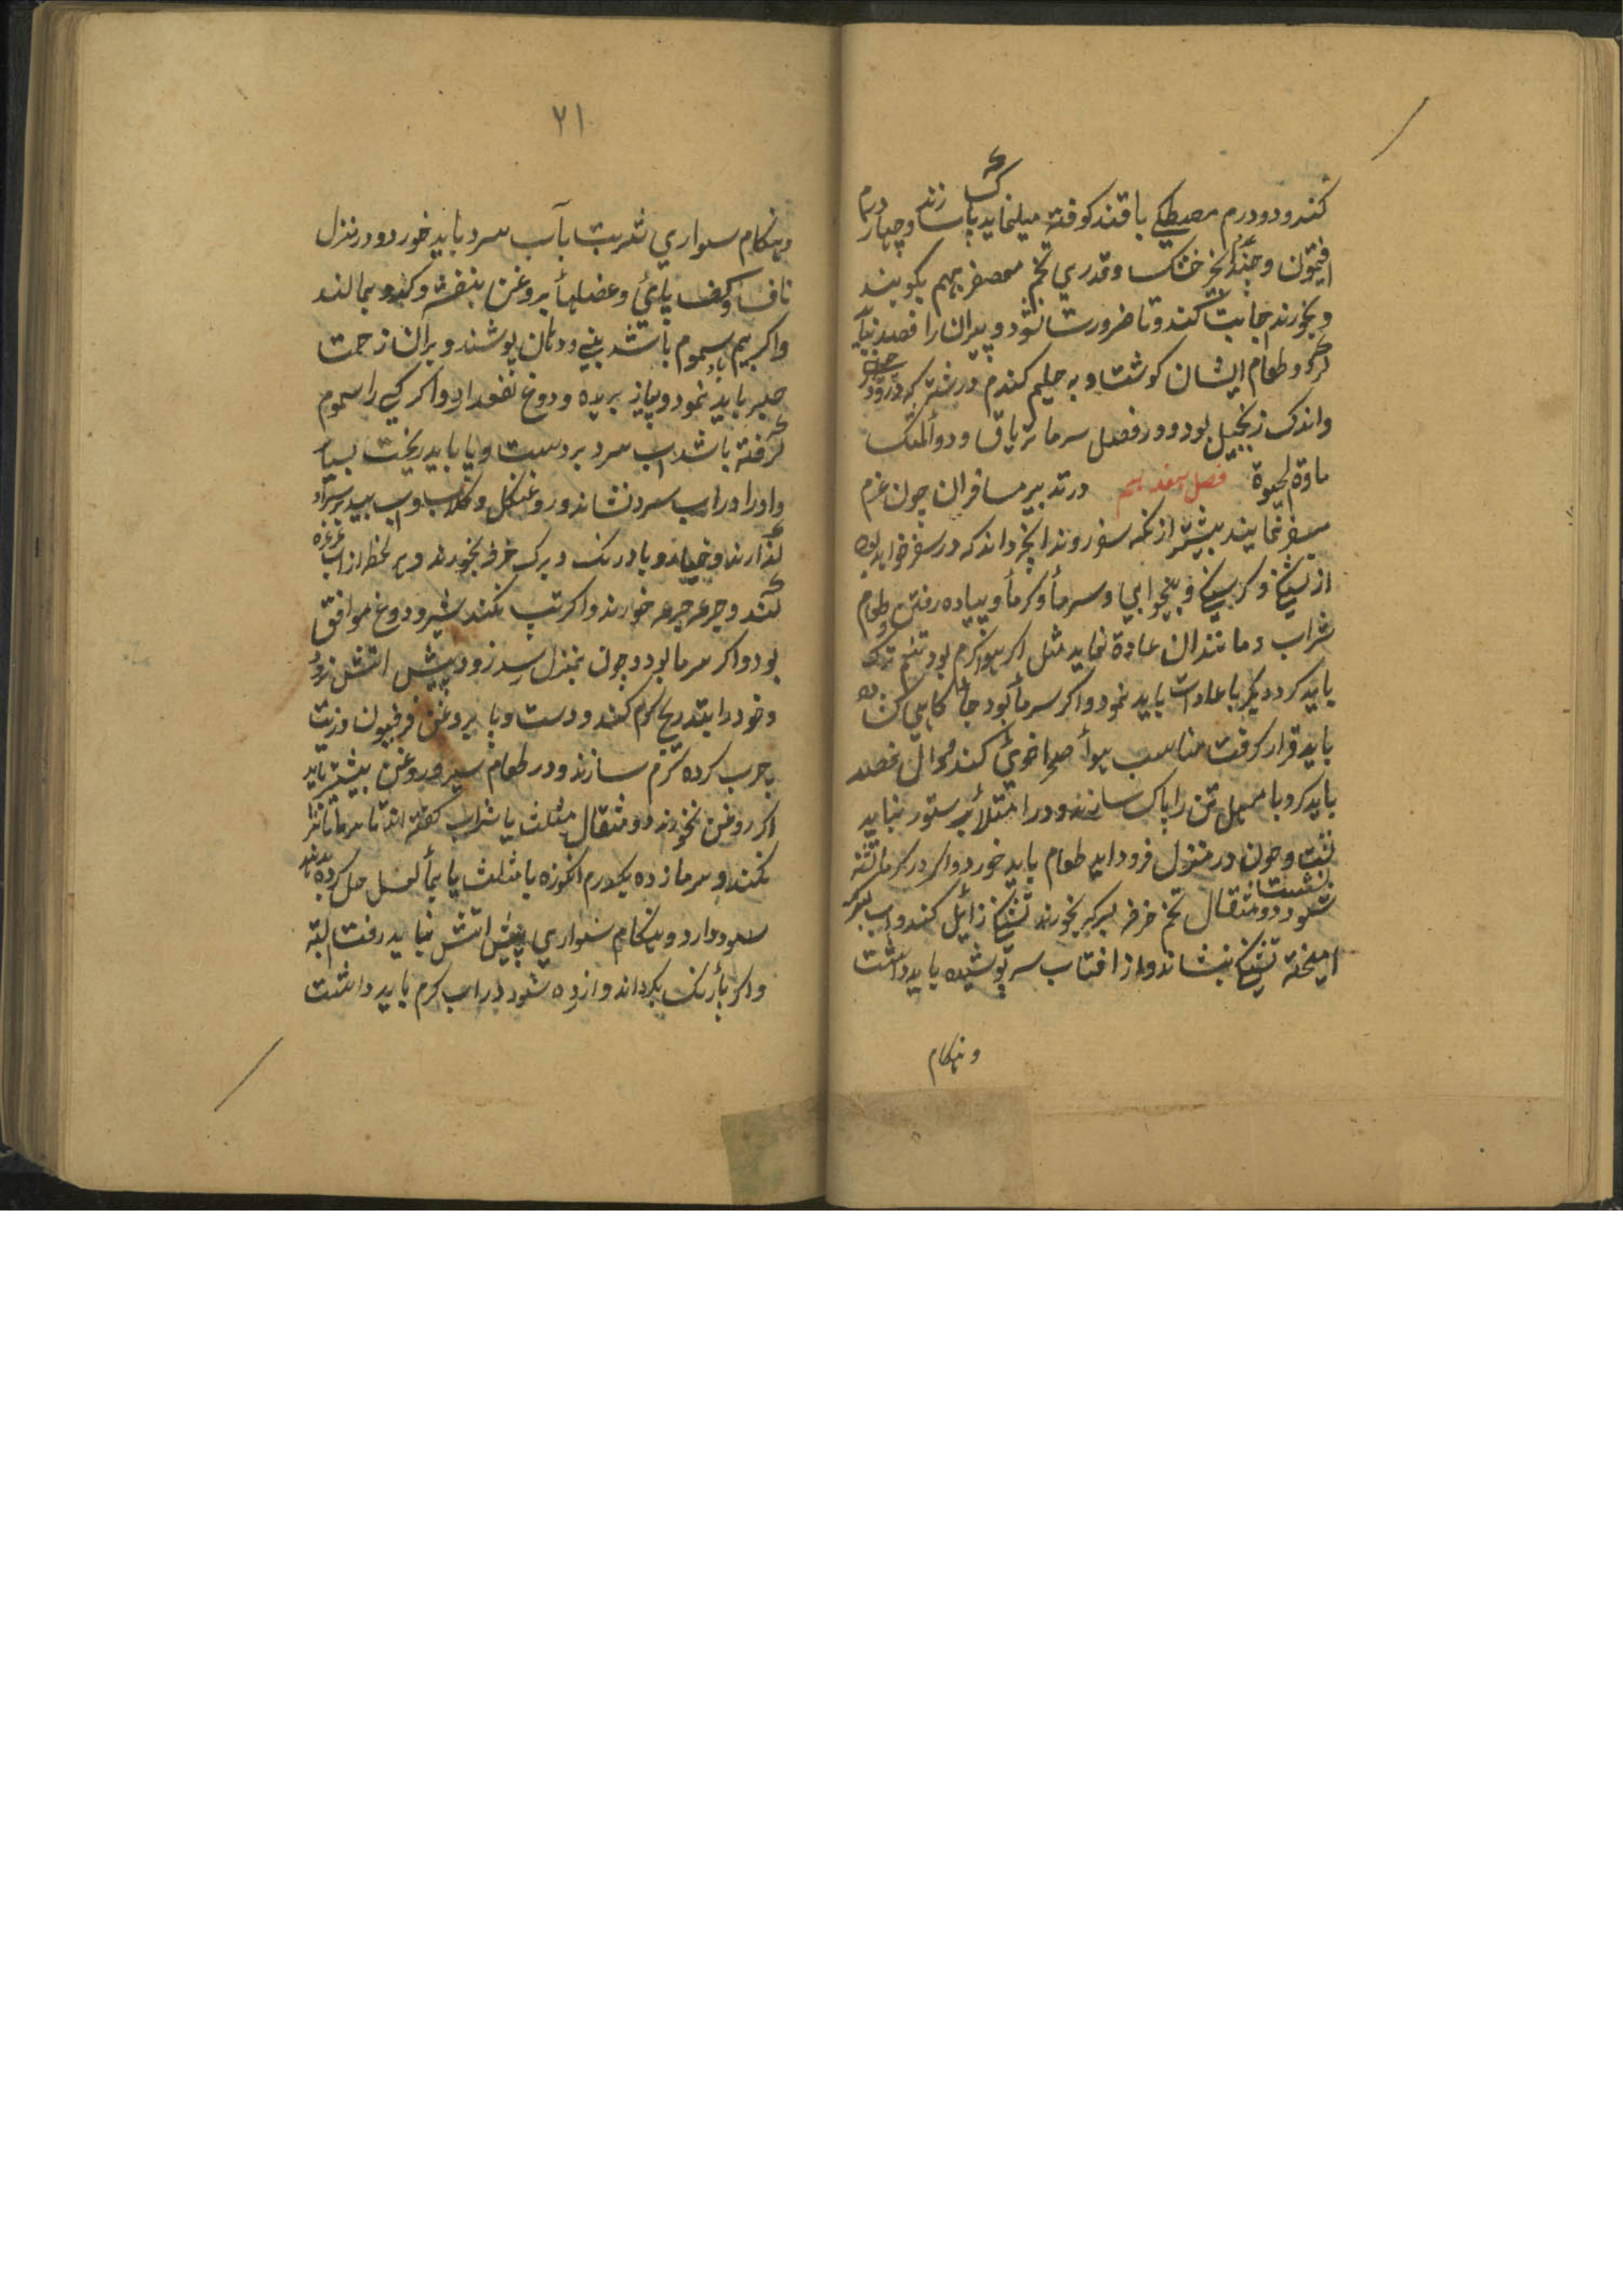 کنند و دو درم مصطکی با قند کوفته میل نماید پاک سازند و چهار درم
افتیمون و چند انجیر خشک و قدری تخم معصفر بهم بکوبند
و بخورند اجابت کند و تا ضرورت نشود پیران را فصد نباید
کرد و طعام ایشان کوشت و به حلیم کندم در شتر که درو
و اندک زنجبیل بود و در فصل سرما تریاق و دوالمسک
مادة الحیوة فصل هفدهم در تدبیر مسافران چون عزم
سفر نمایند بیشتر از انکه سفر روند انچه داند که در سفر خواهد بود
از تشنکی و کرسنکی و بیخوابی و سرما و کرما و پیاده رفتن و طعام
شراب و مانند ان عادة نماید مثل اکر هوا کرم بود تنعم ترک
باید کرد و دیکر با عادات باید نمود و اکر سرما بود جا کاهی
باید قرار کرفت مناسب هوا صحرا خوی کند و فصد
باید کرد با مسهل تن را پاک سازند و در امتلا بر ستور نباید
نشست و چون در منزل فرود اید طعام باید خورد و اکر در کرما تشنه
شود دو مثقال تخم خرفه بسرکه بخورند تشنکی زائل کند و اب بسرکه
امیخته تشنکی بنشاند و از افتاب سر پوشیده باید داشت
و هنکام
۷۱
و هنکام سواری شربت بآب سرد باید خورد و در منزل
ناف و کف پای و عضلها بروغن بنفشه و کدو بمالند
و اکر بیم باد سموم باشد بینی و دهان بپوشند و بران زحمت
صبر باید نمود و پیاز بریده و دوغ نفع دارد و اکر کسی را سموم
کرفته باشد اب سرد بر دست و پا باید ریخت بسیار
و او را در اب سرد نشاند و روغن کل و کلاب و اب بید بر سر او
کذارند و خیار و بادرنک و برک خرفه بخورند و هر لحظه از اب غرغره
کنند و جرعه جرعه خورند و اکر تب نکند شیر و دوغ موافق
بود و اکر سرما بود و چون بمنزل رسد زود پیش اتش نرود
و خود را بتدریج کرم کند و دست و پا بروغن فرفیون و زیت
چرب کرده کرم سازند و در طعام سیر و روغن بیشتر باید
اکر روغن نخورند دو مثقال مثلث یا شراب کفته اند تا سرما تاثیر
نکند و سرما زده یکدرم انکوزه با مثلث یا بماء العسل حل کرده بدهند
سود دارد و هنکام سواری پیش اتش نباید رفت البته
و اکر پا رنک بکرداند و ازرده شود در اب کرم باید داشت